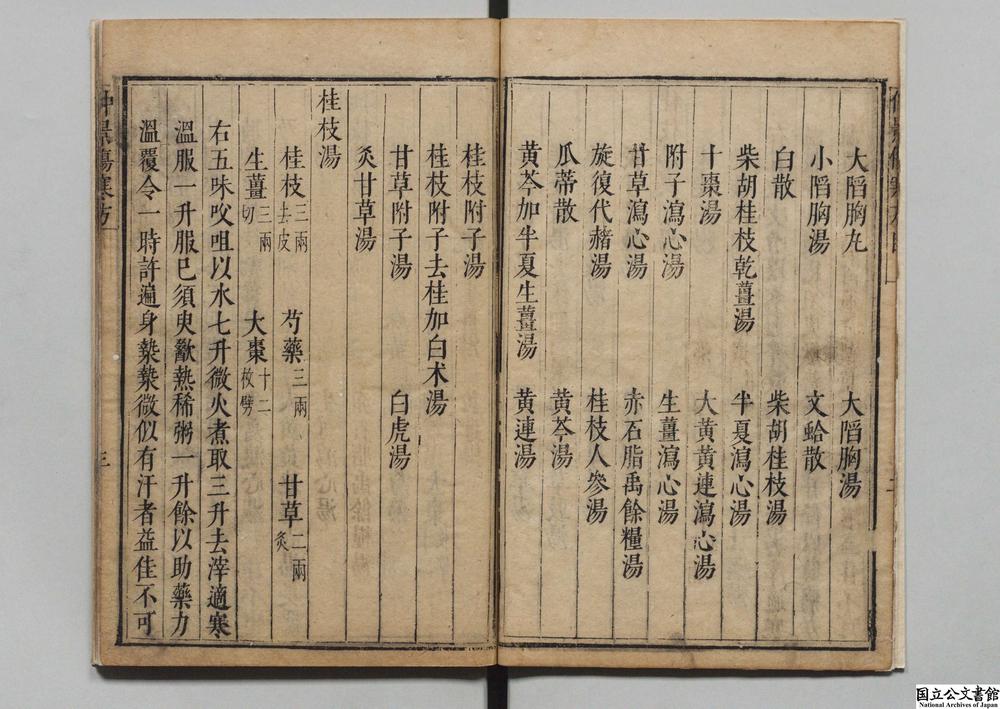 大陷胸丸　大陷胸湯
小陷胸湯　文蛤散
白散　柴胡桂枝湯
柴胡桂枝乾薑湯　半夏瀉心湯
十棗湯　大黃黃連瀉心湯
附子瀉心湯　生薑瀉心湯
甘草瀉心湯　赤石脂禹餘糧湯
旋復代赭湯　桂枝人參湯
瓜蒂散　黃芩湯
黃芩加半夏生薑湯　黃連湯
桂枝附子湯
桂枝附子去桂加白术湯
甘草附子湯　白虎湯
炙甘草湯
桂枝湯
桂枝三兩去皮　芍藥三兩　甘草二兩炙
生薑三兩切　大棗十二枚劈
右五味㕮咀以水七升微火煮取三升去滓適寒
溫服一升服已須臾歠熱稀粥一升餘以助藥力
溫覆令一時許遍身漐漐微似有汗者益佳不可
三
国立公文書館
National Archives of Japan